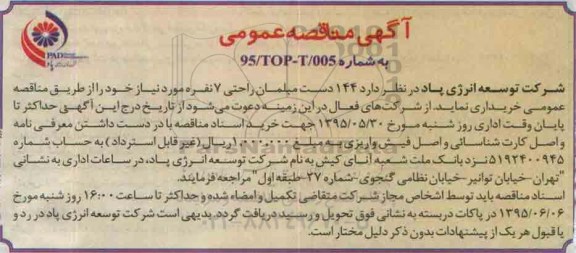 PAD
آگهی مناقصه عمومی
به شماره 95/TOP-T/005
شرکت توسعه انرژی پاد در نظر دارد ۱۴۴ دست مبلمان راحتی ۷ نفره مورد نیاز خود را از طریق مناقصه
عمومی خریداری نماید. از شرکت‌های فعال در این زمینه دعوت می‌شود از تاریخ درج این آگهی حداکثر تا
پایان وقت اداری روز شنبه مورخ ۱۳۹۵/۰۵/۳۰ جهت خرید اسناد مناقصه با در دست داشتن معرفی نامه
و اصل کارت شناسائی و اصل فیش واریزی به مبلغ ریال (غیر قابل استرداد) به حساب شماره
۵۱۹۲۴۰۰۹۴۵ نزد بانک ملت شعبه آنای کیش به نام شرکت توسعه انرژی پاد، در ساعات اداری به نشانی
"تهران -خیابان توانیر -خیابان نظامی گنجوی -شماره ۲۷-طبقه اول" مراجعه فرمایند.
اسناد مناقصه باید توسط اشخاص مجاز شرکت متقاضی تکمیل و امضاء شده و حداکثر تا ساعت ۱۶:۰۰ روز شنبه مورخ
۱۳۹۵/۰۶/۰۶ در پاکات دربسته به نشانی فوق تحویل و رسید دریافت گردد. بدیهی است شرکت توسعه انرژی پاد در رد و
یا قبول هر یک از پیشنهادات بدون ذکر دلیل مختار است.